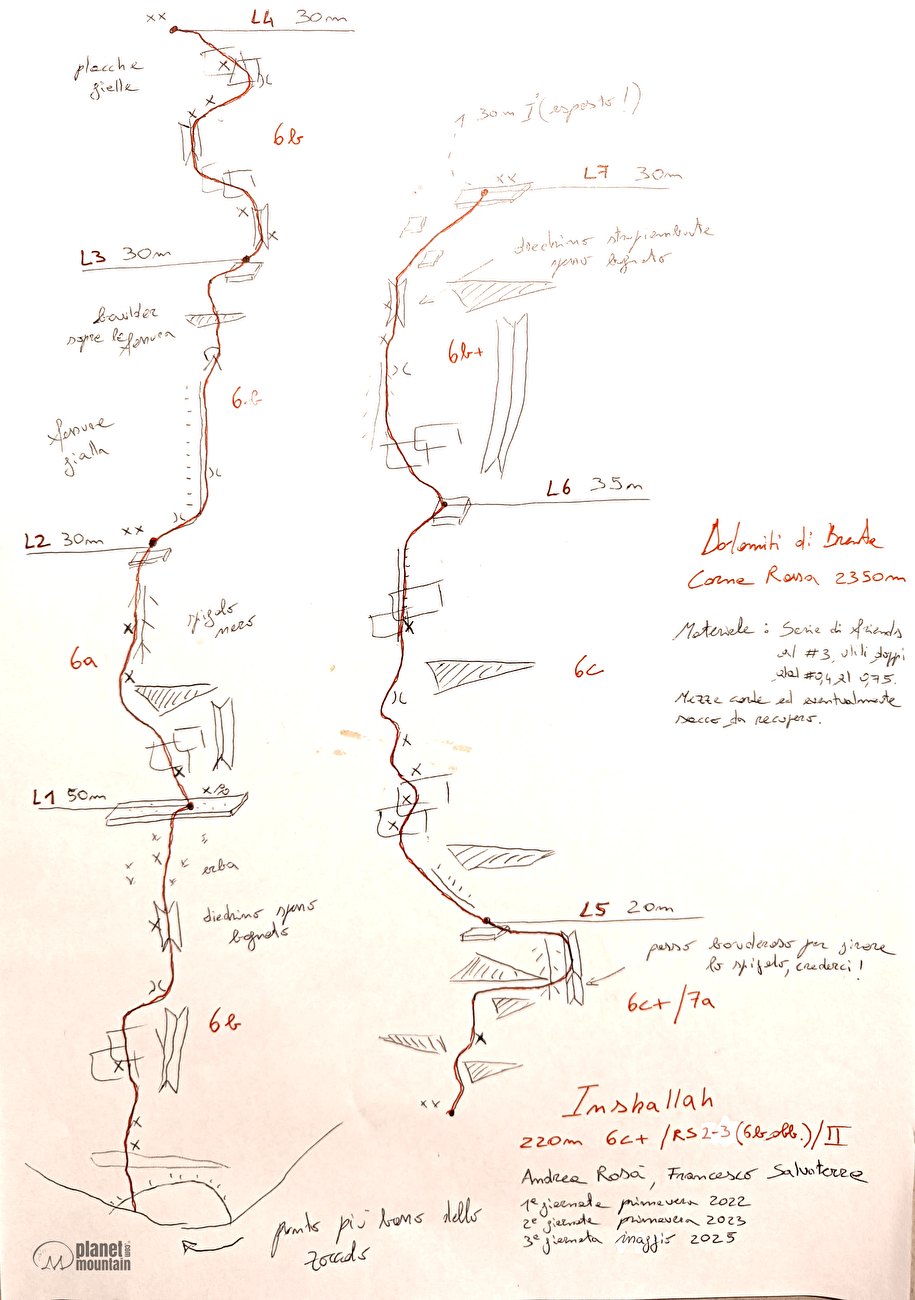 xx
L4 30m
placche
gialle
6b
L3 30m
boulder
sopra la fessura
6b
fessura
gialla
xx
L2 30m
spigolo
nero
6a
L1 50m
erba
diedrino spesso
bagnato
6b
punto più basso dello
zoccolo
30m I° (esposto!)
xx
L7 30m
diedrino strapiombante
spesso bagnato
6b+
L6 35m
6c
L5 20m
passo boulderoso per girare
lo spigolo, crederci!
6c+/7a
xx
Dolomiti di Brenta
Corna Rossa 2350m
Materiale: Serie di friends
al #3, utili doppi
dal #0,4 al 0,75.
Mezze corde ed eventualmente
sacco da recupero.
Inshallah
220m 6c+ /RS2-3 (6b obb.)/II
Andrea Rosà, Francesco Salvaterra
1ª giornata primavera 2022
2ª giornata primavera 2023
3ª giornata maggio 2025
planet
mountain
.com